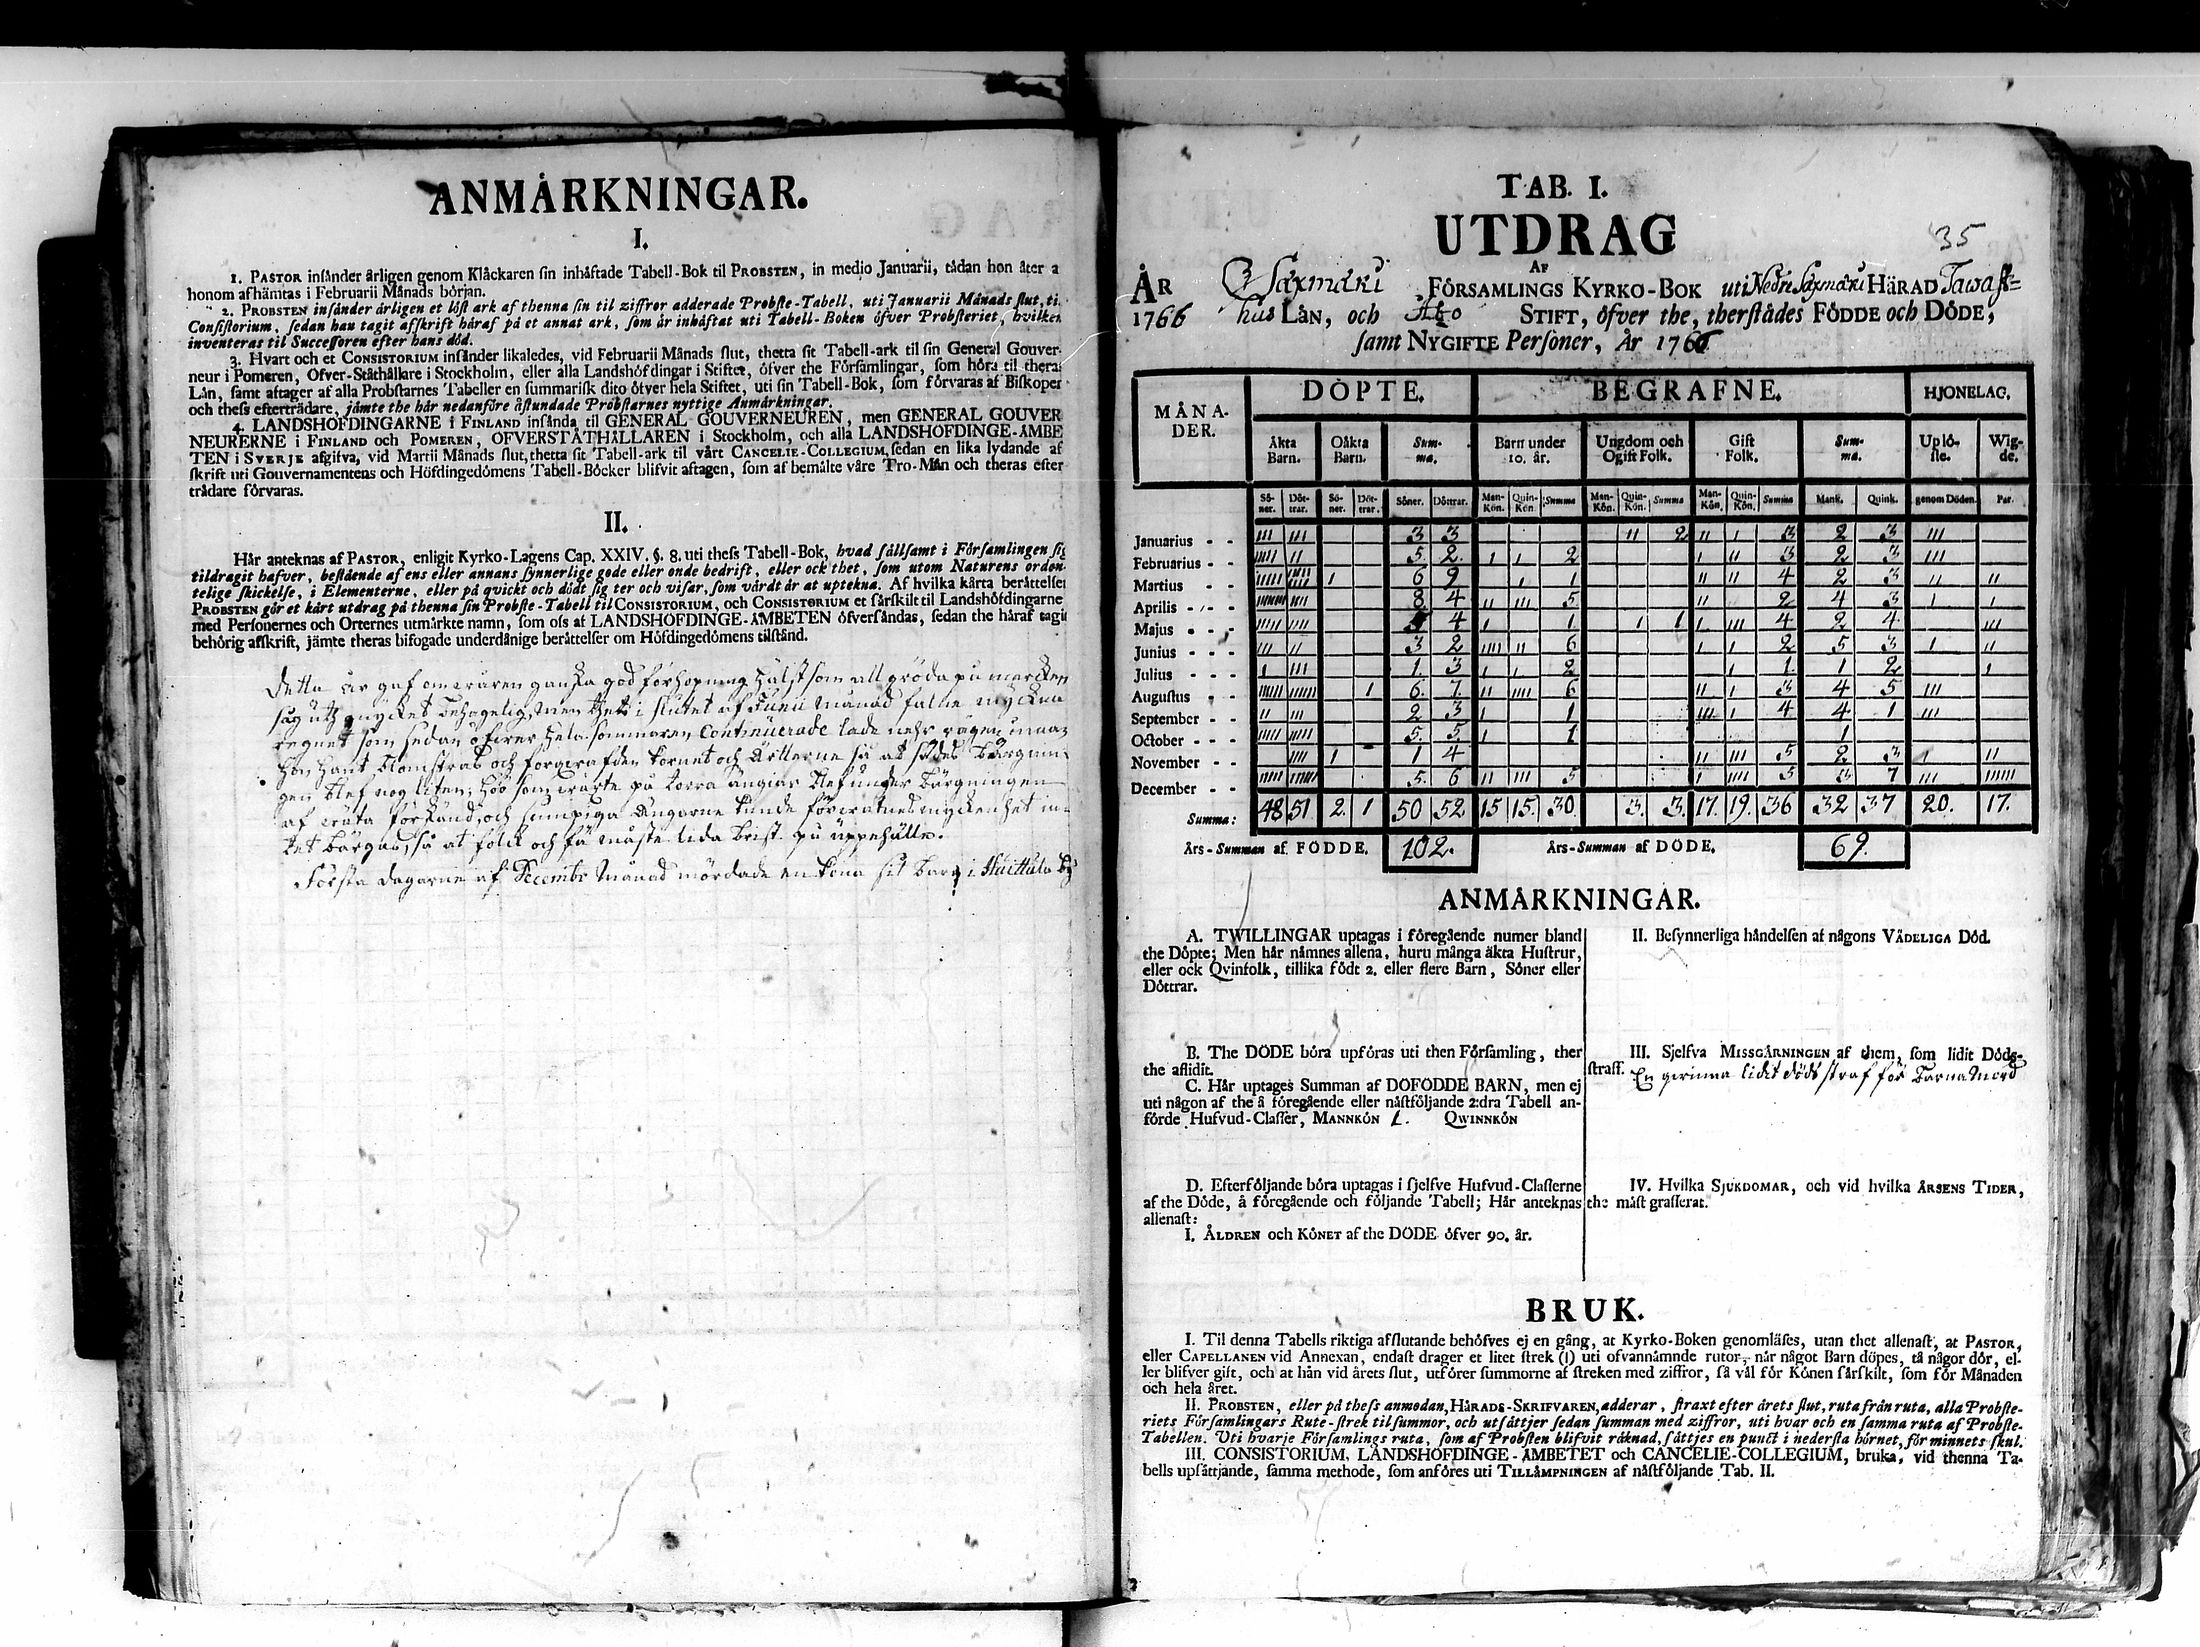 ANMÅRKNINGAR.
I.
1. PASTOR insånder årligen genom Klåckaren sin inhåftade Tabell-Bok til PROBSTEN, in medio Januarii, tådan hon åter a
honom afhämtas i Februarii Månads början.
2. PROBSTEN insånder årligen et lóst ark af thenna sin til ziffror adderade Probste-Tabell, uti Januarii Månads slut, ti.
Consistorium, sedan han tagit afskrift håraf på et annat ark, som år inhåftat uti Tabell-Boken ófver Probsteriet, hvilken
inventeras til Successoren efter hans dód.
3. Hvart och et CONSISTORIUM insånder likaledes, vid Februarii Månads slut, thetta sit Tabell-ark til sin General Gouver-
neur i Pomeren, Ófver-Ståthållare i Stockholm, eller alla Landshófdingar i Stiftet, ófver the Fórsamlingar, som hóra til theras
Lån, samt aftager af alla Probstarnes Tabeller en summarisk dito ófver hela Stiftet, uti sin Tabell-Bok, som fórvaras af Biskoper
och thess eftertrådare, jåmte the hår nedanfóre åstundade Probstarnes nyttige Anmårkningar.
4. LANDSHOFDINGARNE i FINLAND insånda til GENERAL GOUVERNEUREN, men GENERAL GOUVER
NEURERNE i FINLAND och POMEREN, OFVERSTÅTHÅLLAREN i Stockholm, och alla LANDSHOFDINGE-ÅMBE
TEN i SVERJE afgifva, vid Martii Månads slut, thetta sit Tabell-ark til vårt CANCELIE-COLLEGIUM, sedan en lika lydande af
skrift uti Gouvernamentens och Hófdingedómens Tabell-Bócker blifvit aftagen, som af bemålte våre Tro-Mån och theras efter
trådare fórvaras.
II.
Hår anteknas af PASTOR, enligit Kyrko-Lagens Cap. XXIV. §. 8. uti thess Tabell-Bok, hvad sållsamt i Fórsamlingen sig
tildragit hafver, bestående af ens eller annans synnerlige gode eller onde bedrift, eller ock thet, som utom Naturens orden
telige skickelse, i Elementerne, eller på qvickt och dódt sig ter och visar, som vårdt år at uptekna. Af hvilka kårta beråttelser
PROBSTEN gór et kårt utdrag på thenna sin Probste-Tabell til CONSISTORIUM, och CONSISTORIUM et sårskilt til Landshófdingarne
med Personernes och Orternes utmårkte namn, som oss af LANDSHOFDINGE-ÅMBETEN ófversåndas, sedan the håraf tagit
behörig afskrift, jåmte theras bifogade underdånige beråttelser om Hófdingedómens tilstånd.
Detta år gaf om wåren ganska god förhopning hälst som all gröda på marcken
såg uth mycket behagelig, men thet i slutet af Junii månad falne myckna
regnet som sedan öfwer hela sommaren Continuerade lade nehr rågen innan
hon hant blomstras och förqwafde kornet och Ärtterne så at sädes bärgnin-
gen blef nog liten; Höö som wäxte på torra ängiar blef under bärgningen
af wäta förskänd, och sumpiga ängarne kunde för watnets myckenhet in-
tet bärgas, så at folck och fä måste lida brist på uppehälle.
Första dagarne af Decembr Månad mördade en kona sit barn i Huittula by
TAB. I.
UTDRAG
35
AF
ÅR Saxmäki FÓRSAMLINGS KYRKO-BOK uti Nedre Saxmäki HÅRAD Tawast=
1766 hus LÅN, och Åbo STIFT, ófver the, therstådes FÓDDE och DÓDE,
samt NYGIFTE Personer, År 1766
MÅNA-DER. DÓPTE. BEGRAFNE. HJONELAG.
Åkta Barn. Oåkta Barn. Sum-ma. Barn under 10. år. Ungdom och Ogift Folk. Gift Folk. Sum-ma. Upló-sse. Wig-de.
Só-ner. Dót-trar. Só-ner. Dót-trar. Sóner. Dóttrar. Man-Kón. Quin-Kón. Summa Man-Kón. Quin-Kón. Summa Man-Kón. Quin-Kón. Summa Mank. Quink. genom Dóden. Par.
Januarius - - III III 3 3 II 2 II I 3 2 3 III
Februarius - - IIIII II 5. 2. I I 2 I II 3 2 3 III
Martius - - IIIII IIIIIIIII I 6 9 I 1 II II 4 2 3 II II
Aprilis - - - IIIIIIII IIII 8 4 II III 5 II 2 4 3 I I
Majus - - - IIIII IIII 5 4 I 1 I 1 I III 4 2 4 III
Junius - - - III II 3 2 IIII II 6 I I 2 5 3 I II
Julius - - - I III 1. 3 I I 2 I 1. 1 2 I
Augustus - - IIIIII IIIIII I 6. 7. II IIII 6 II I 3 4 5 III
September - - II III 2 3 I 1 III I 4 4 1 III
October - - IIIII IIIII 5. 5 I 1 1
November - - IIII I 1 4 II III 5 2 3 I II
December - - IIIII IIIIII 5. 6 II III 5 I IIII 5 3 7 III IIIII
Summa: 48 51 2. 1 50 52 15 15. 30. 3. 3. 17. 19. 36 32 37 20. 17.
Års-Summan af FÓDDE. 102. Års-Summan af DÓDE. 69.
ANMARKNINGAR.
A. TWILLINGAR uptagas i fóregående numer bland
the Dópte; Men hår nåmnes allena, huru många åkta Hustrur,
eller ock Qvinfolk, tillika fódt 2. eller flere Barn, Sóner eller
Dóttrar.
B. The DÓDE bóra upfóras uti then Fórsamling, ther
the aflidit.
C. Hår uptages Summan af DÓFÓDDE BARN, men ej
uti någon af the å fóregående eller nåstfóljande 2:dra Tabell an-
fórde Hufvud-Classer, MANNKÓN 1. QWINNKÓN
D. Efterfóljande bóra uptagas i sjelfve Hufvud-Classerne
af the Dóde, å fóregående och fóljande Tabell; Hår anteknas
allenast:
I. ÅLDREN och KÓNET af the DÓDE ófver 90. år.
II. Besynnerliga håndelsen af någons VÅDELIGA Dód.
III. Sjelfva MISSGÅRNINGEN af them, som lidit Dóds-
straff. En qwinna lidit döds straf för barna mord
IV. Hvilka SJUKDOMAR, och vid hvilka ÅRSENS TIDER,
the måst grasserat.
BRUK.
I. Til denna Tabells riktiga afslutande behófves ej en gång, at Kyrko-Boken genomläses, utan thet allenast, at PASTOR,
eller CAPELLANEN vid Annexan, endast drager et litet strek (I) uti ofvannåmnde rutor, når något Barn dópes, tå någor dór, el-
ler blifver gift, och at hån vid årets slut, utfórer summorne af streken med ziffror, så vål fór Kónen sårskilt, som fór Månaden
och hela året.
II. PROBSTEN, eller på thess anmodan, HÅRADS-SKRIFVAREN, adderar, straxt efter årets slut, ruta från ruta, alla Probste-
riets Fórsamlingars Rute-strek til summor, och utsåttjer sedan summan med ziffror, uti hvar och en samma ruta af Probste-
Tabellen. Uti hvarje Fórsamlings ruta, som af Probsten blifvit råknad, såttjes en punct i nedersta hórnet, fór minnets skul.
III. CONSISTORIUM, LANDSHÓFDINGE-ÅMBETET och CANCELIE-COLLEGIUM, bruka, vid thenna Ta-
bells upsåttjande, samma methode, som anfóres uti TILLÅMPNINGEN af nåstfóljande Tab. II.